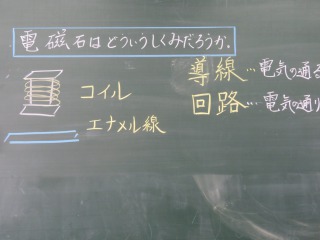 電磁石はどういうしくみだろうか。
コイル
エナメル線
導線…電気の通る
回路…電気の通り